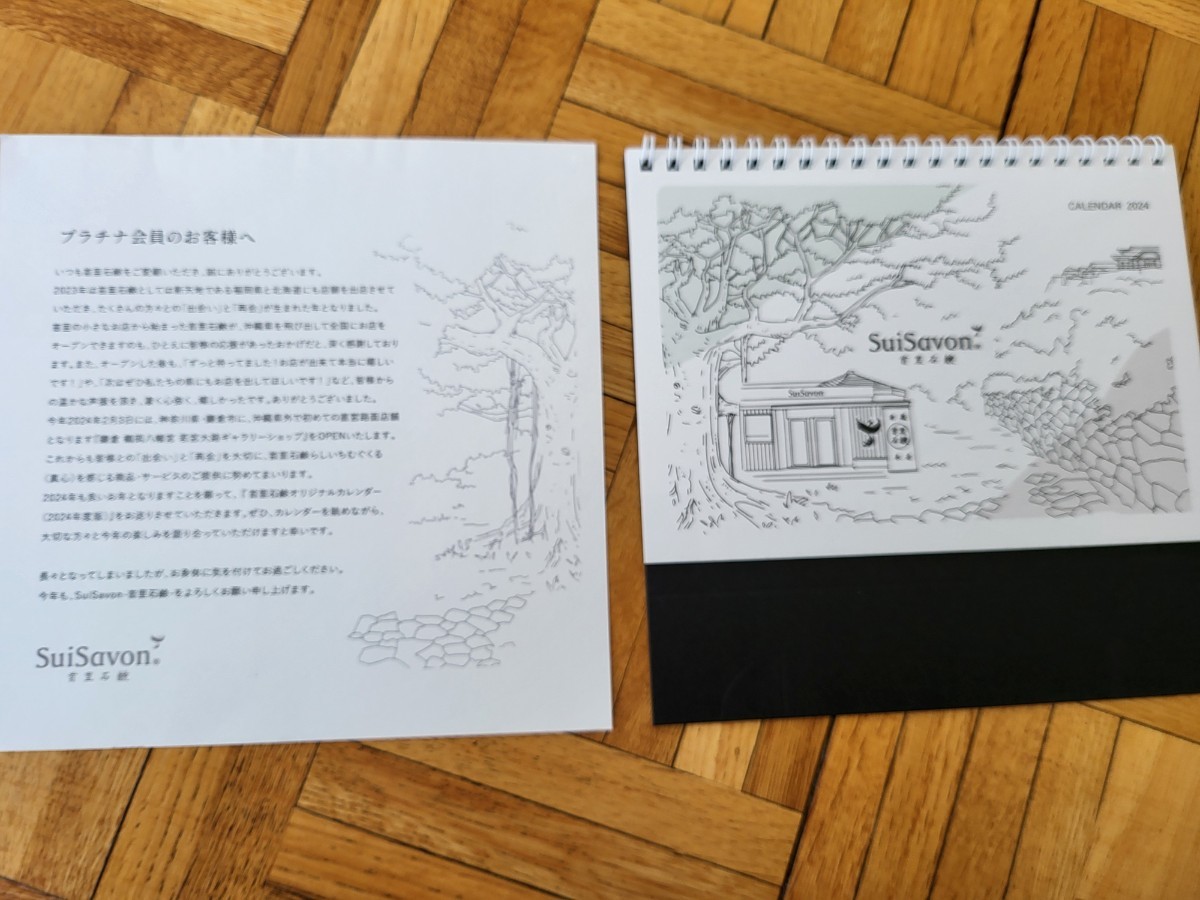 プラチナ会員のお客様へ
いつも首里石鹸をご愛顧いただき、誠にありがとうございます。
2023年は首里石鹸としては新天地である福岡県と北海道にも店舗を出店させて
いただき、たくさんの方々との「出会い」と「再会」が生まれた年となりました。
首里の小さなお店から始まった首里石鹸が、沖縄県を飛び出して全国にお店を
オープンできますのも、ひとえに皆様の応援があったおかげだと、深く感謝しており
ます。また、オープンした際も、「ずっと待ってました！お店が出来て本当に嬉しい
です！」や、「次はぜひ私たちの街にもお店を出してほしいです！」など、皆様から
の温かな声援を頂き、凄く心強く、嬉しかったです。ありがとうございました。
今年2024年2月5日には、神奈川県・鎌倉市に、沖縄県外で初めての直営路面店舗
となります『鎌倉 鶴岡八幡宮 若宮大路ギャラリーショップ』をOPENいたします。
これからも皆様との「出会い」と「再会」を大切に、首里石鹸らしいちむぐくる
（真心）を感じる商品・サービスのご提供に努めてまいります。
2024年も良いお年となりますことを願って、『首里石鹸オリジナルカレンダー
（2024年度版）』をお送りさせていただきます。ぜひ、カレンダーを眺めながら、
大切な方々と今年の楽しみを語り合っていただけますと幸いです。
長々となってしまいましたが、お身体に気を付けてお過ごしください。
今年も、SuiSavon-首里石鹸-をよろしくお願い申し上げます。
SuiSavon
首里石鹸
CALENDAR 2024
SuiSavon
首里石鹸
SuiSavon
首里石鹸